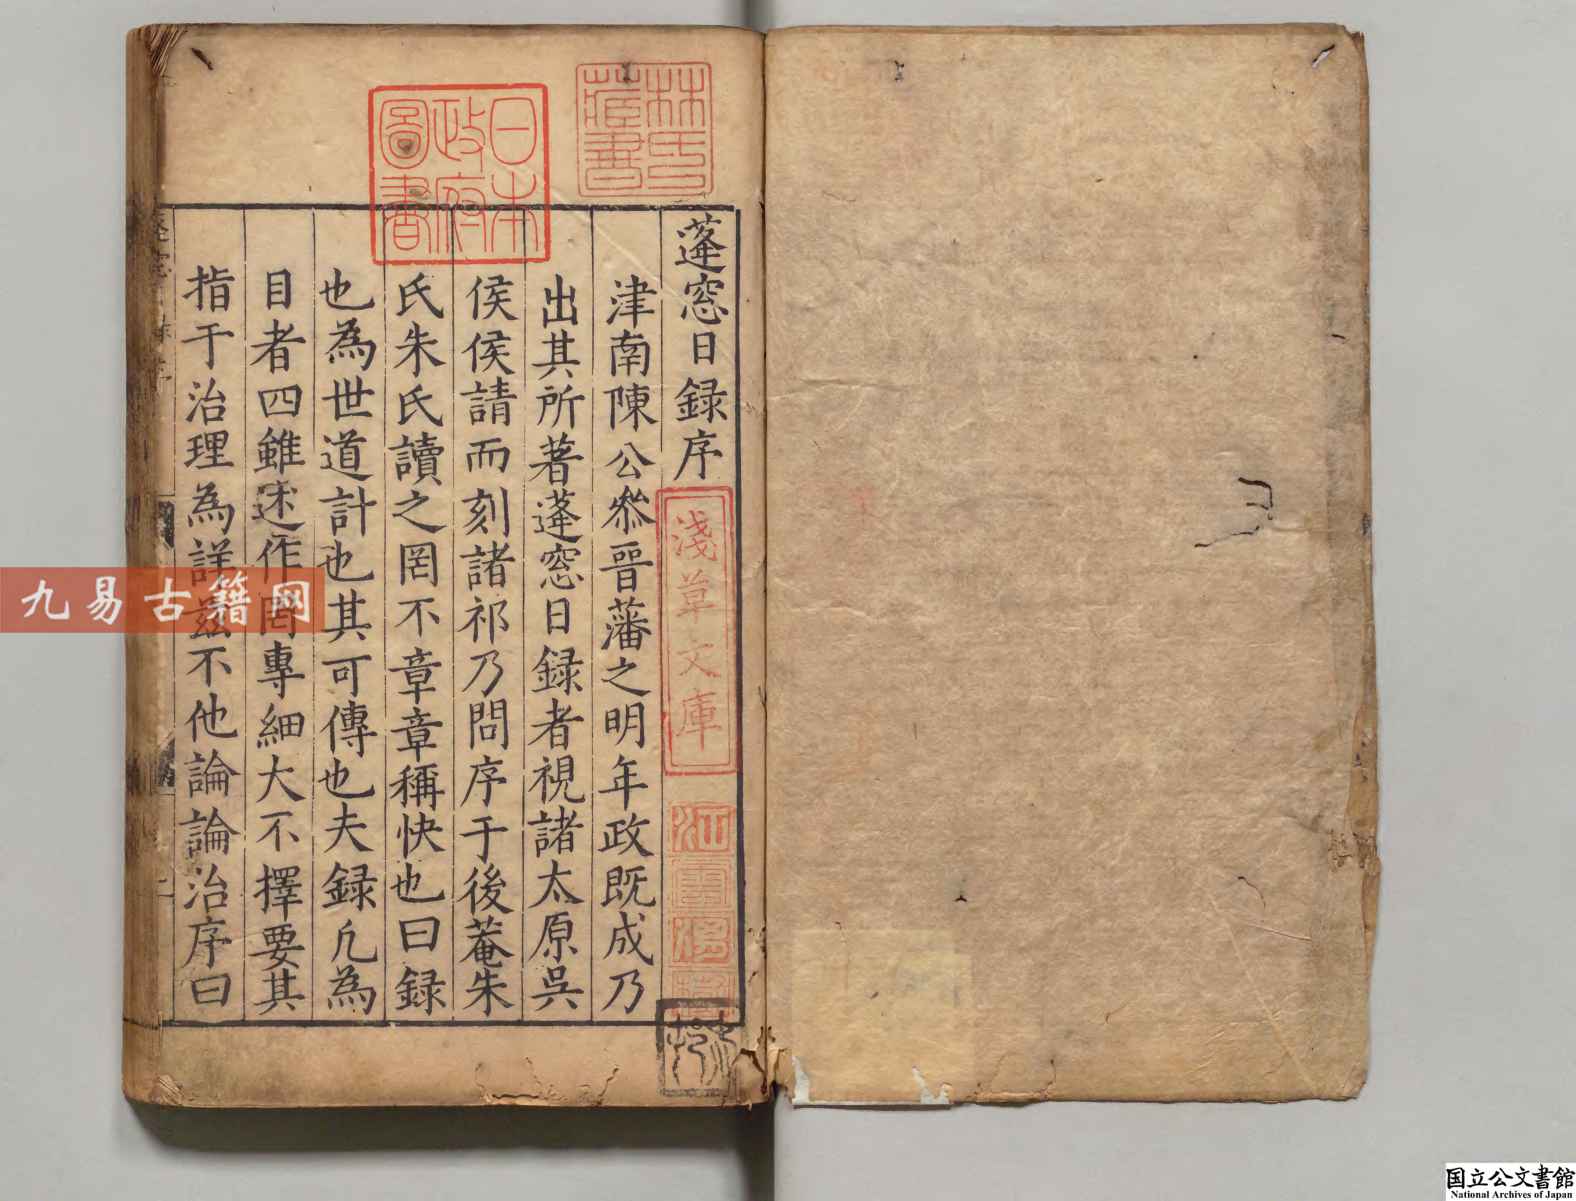 蓬窓日録序
津南陳公叅晉藩之明年政既成乃
出其所著蓬窓日録者視諸太原吳
侯侯請而刻諸祁乃問序于後菴朱
氏朱氏讀之罔不章章稱快也曰録
也為世道計也其可傳也夫録凢為
目者四雖述作罔專細大不擇要其
指于治理為詳兹不他論論治序曰
林氏藏書
日本政府圖書
淺草文庫
九易古籍网
国立公文書館
National Archives of Japan